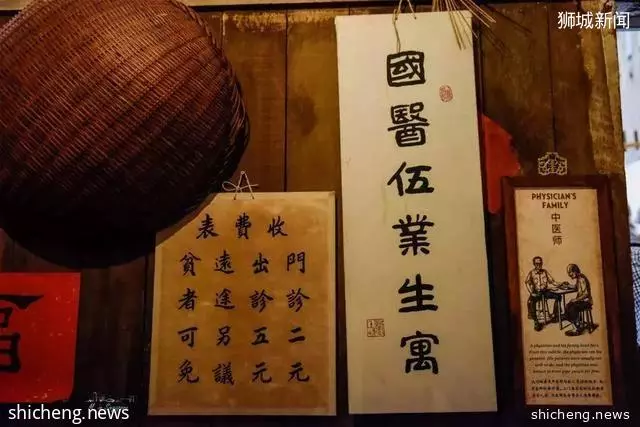 狮城新闻
收費表
門診二元
出診五元
遠途另議
貧者可免
國醫伍業生寓
PHYSICIAN'S
FAMILY
中医师
A physician and his family lived here.
shicheng.news
shicheng.news